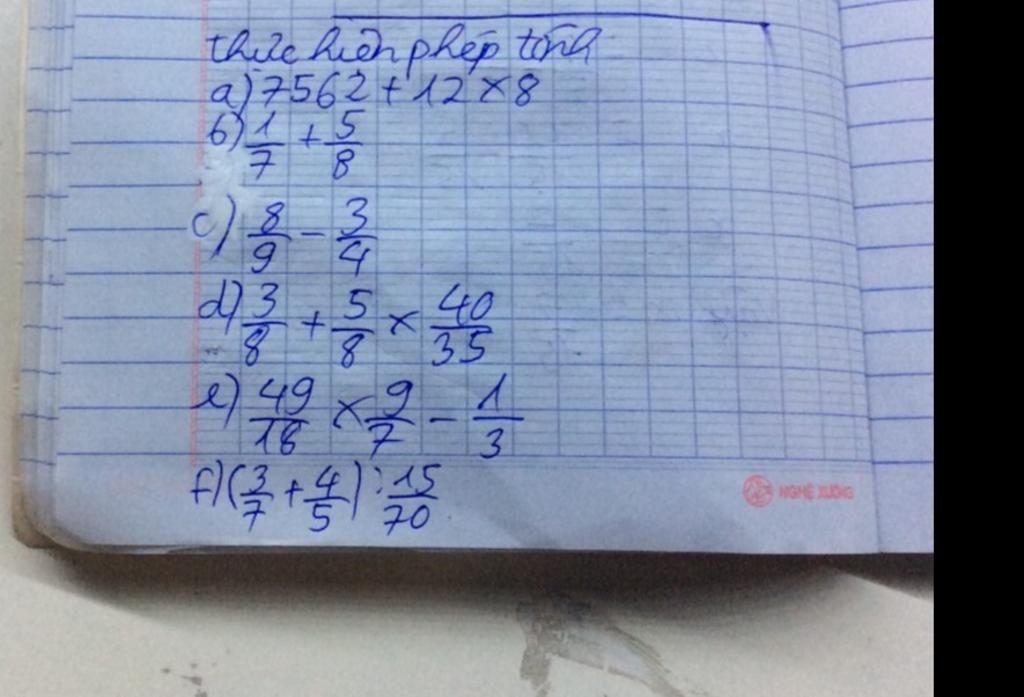 thực hiện phép tính
a) 7562 + 12 × 8
b) 1/7 + 5/8
c) 8/9 - 3/4
d) 3/8 + 5/8 × 40/35
e) 49/18 × 9/7 - 1/3
f) (3/7 + 4/5) : 15/70
NGHỆ XƯƠNG